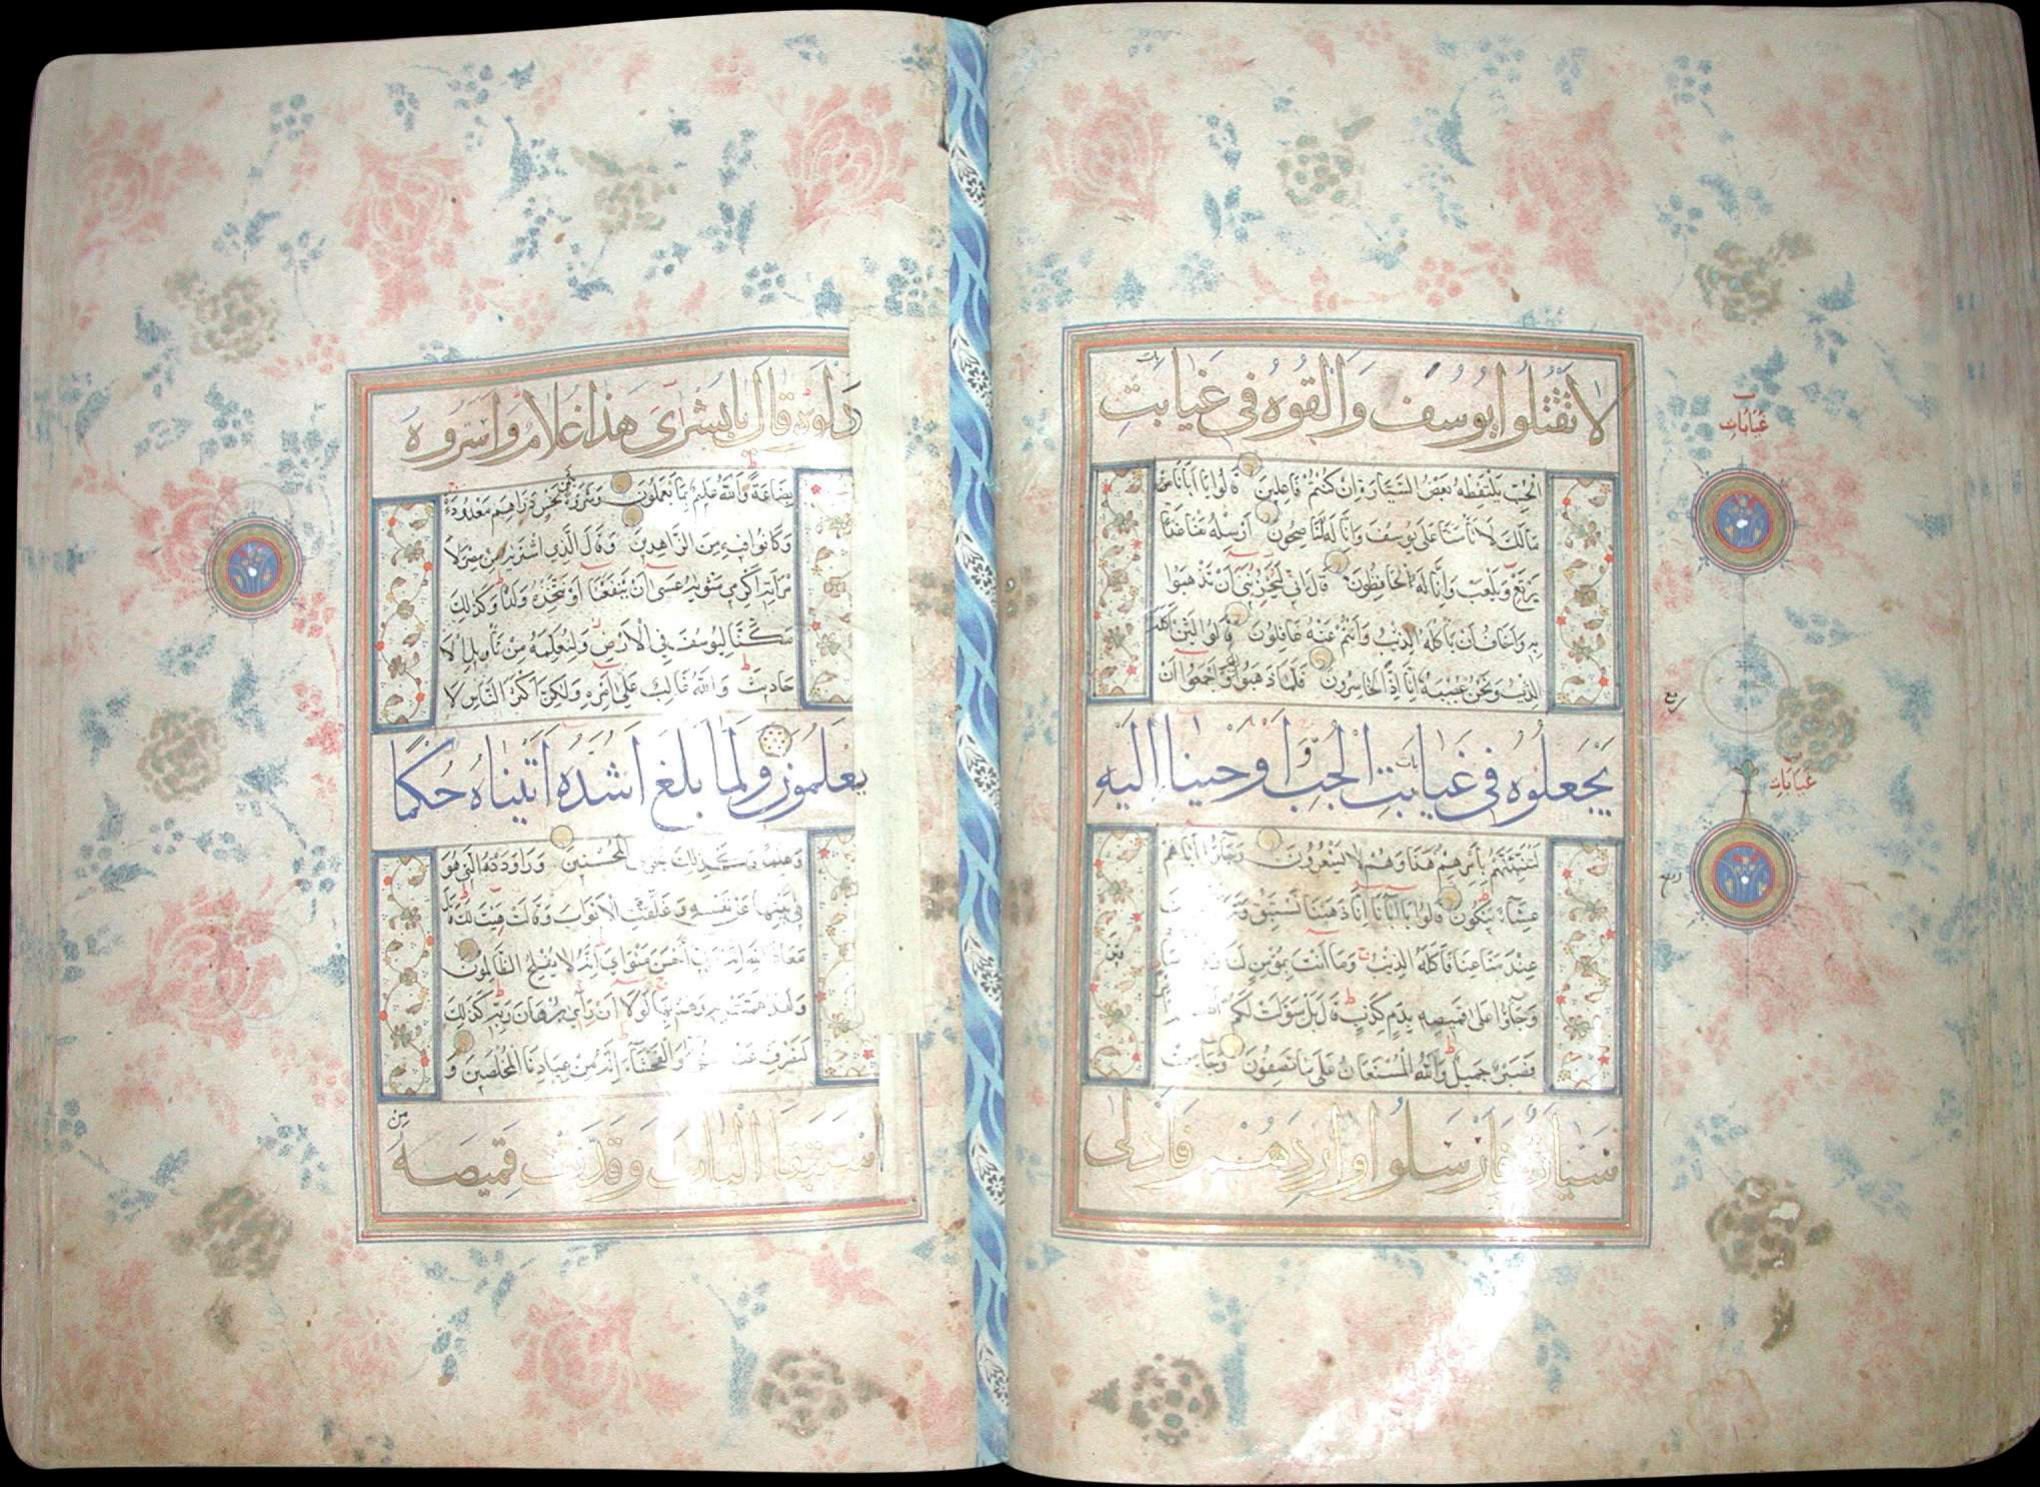 لا تقتلوا يوسف والقوه في غيابت
الجب يلتقطه بعض السيارة ان كنتم فاعلين قالوا يا ابانا
مالك لا تأمنا على يوسف وانا له لناصحون ارسله معنا غدا
يرتع ويلعب وانا له لحافظون قال اني ليحزنني ان تذهبوا
به واخاف ان يأكله الذئب وانتم عنه غافلون قالوا لئن اكله
الذئب ونحن عصبة انا اذا لخاسرون فلما ذهبوا به واجمعوا ان
يجعلوه في غيابت الجب واوحينا اليه
لتنبئنهم بأمرهم هذا وهم لا يشعرون وجاؤا اباهم
عشاء يبكون قالوا يا ابانا انا ذهبنا نستبق
عند متاعنا فاكله الذئب وما انت بمؤمن لنا
وجاؤا على قميصه بدم كذب قال بل سولت لكم
فصبر جميل والله المستعان على ما تصفون وجاءت
سيارة فارسلوا واردهم فادلى
غيابات
ربع
غيابات
دلوه قال يا بشرى هذا غلام واسروه
بضاعة والله عليم بما يعملون وشروه بثمن بخس دراهم معدودة
وكانوا فيه من الزاهدين وقال الذي اشتريه من مصر لا
مرأته اكرمي مثويه عسى ان ينفعنا او نتخذه ولدا وكذلك
مكنا ليوسف في الارض ولنعلمه من تأويل الا
حاديث والله غالب على امره ولكن اكثر الناس لا
يعلمون ولما بلغ اشده اتيناه حكما
وعلما وكذلك نجزي المحسنين وراودته التي هو
في بيتها عن نفسه وغلقت الابواب وقالت هيت لك قال
معاذ الله انه ربي احسن مثواي انه لا يفلح الظالمون
ولقد همت به وهم بها لولا ان رأي برهان ربه كذلك
لنصرف عنه والفحشاء انه من عبادنا المخلصين و
استبقا الباب وقدت قميصه
من